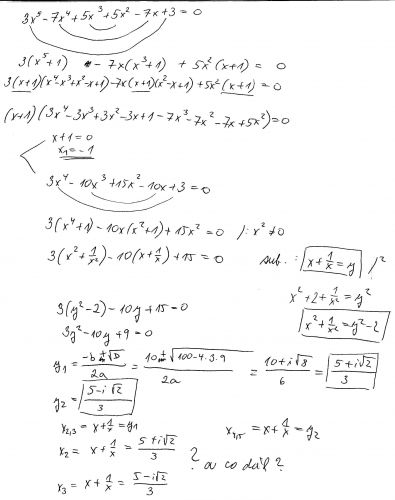 3x⁵ - 7x⁴ + 5x³ + 5x² - 7x + 3 = 0
3(x⁵+1) - 7x(x³+1) + 5x²(x+1) = 0
3(x+1)(x⁴-x³+x²-x+1) - 7x(x+1)(x²-x+1) + 5x²(x+1) = 0
(x+1)(3x⁴-3x³+3x²-3x+1-7x³-7x²-7x+5x²) = 0
x+1 = 0
x₁ = -1
3x⁴ - 10x³ + 15x² - 10x + 3 = 0
3(x⁴+1) - 10x(x²+1) + 15x² = 0 /: x² ≠ 0
3(x² + 1/x²) - 10(x + 1/x) + 15 = 0
sub.: x + 1/x = y /²
x² + 2 + 1/x² = y²
x² + 1/x² = y² - 2
3(y²-2) - 10y + 15 = 0
3y² - 10y + 9 = 0
y₁ = (-b ± √D)/2a = (10 ± √(100-4.3.9))/2a = (10 + i√8)/6 = (5 + i√2)/3
y₂ = (5 - i√2)/3
x₂,₃ = x + 1/x = y₁
x₄,₅ = x + 1/x = y₂
x₂ = x + 1/x = (5 + i√2)/3
? a co dál ?
x₃ = x + 1/x = (5 - i√2)/3